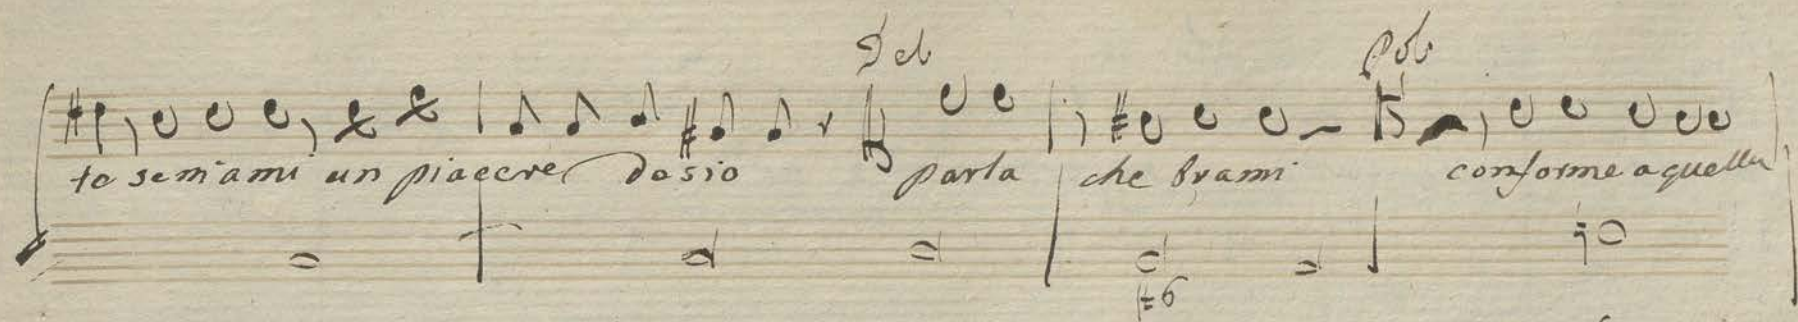 Del Pol
te se m'ami un piacere desio parla che brami conforme a quella
♯6